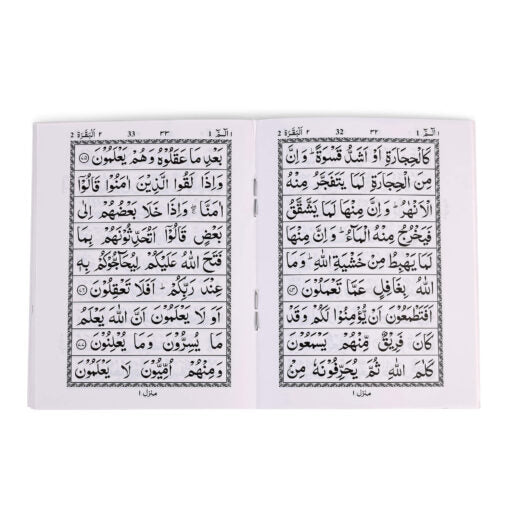 ١ الٓمّٓ 1 ٣٢ 32 ٢ اَلْبَقَرَة 2
كَالْحِجَارَةِ اَوْ اَشَدُّ قَسْوَةً ؕ وَاِنَّ
مِنَ الْحِجَارَةِ لَمَا يَتَفَجَّرُ مِنْهُ
الْاَنْهٰرُ ؕ وَاِنَّ مِنْهَا لَمَا يَشَّقَّقُ
فَيَخْرُجُ مِنْهُ الْمَآءُ ؕ وَاِنَّ مِنْهَا
لَمَا يَهْبِطُ مِنْ خَشْيَةِ اللّٰهِ ؕ وَمَا
اللّٰهُ بِغَافِلٍ عَمَّا تَعْمَلُوْنَ ﴿٧٤﴾
اَفَتَطْمَعُوْنَ اَنْ يُّؤْمِنُوْا لَكُمْ وَقَدْ
كَانَ فَرِيْقٌ مِّنْهُمْ يَسْمَعُوْنَ
كَلٰمَ اللّٰهِ ثُمَّ يُحَرِّفُوْنَهٗ مِنْۢ
منزل ١
١ الٓمّٓ 1 ٣٣ 33 ٢ اَلْبَقَرَة 2
بَعْدِ مَا عَقَلُوْهُ وَهُمْ يَعْلَمُوْنَ ﴿٧٥﴾
وَاِذَا لَقُوا الَّذِيْنَ اٰمَنُوْا قَالُوْٓا
اٰمَنَّا ۖۚ وَاِذَا خَلَا بَعْضُهُمْ اِلٰى
بَعْضٍ قَالُوْٓا اَتُحَدِّثُوْنَهُمْ بِمَا
فَتَحَ اللّٰهُ عَلَيْكُمْ لِيُحَآجُّوْكُمْ بِهٖ
عِنْدَ رَبِّكُمْ ؕ اَفَلَا تَعْقِلُوْنَ ﴿٧٦﴾
اَوَ لَا يَعْلَمُوْنَ اَنَّ اللّٰهَ يَعْلَمُ
مَا يُسِرُّوْنَ وَمَا يُعْلِنُوْنَ ﴿٧٧﴾
وَمِنْهُمْ اُمِّيُّوْنَ لَا يَعْلَمُوْنَ
منزل ١